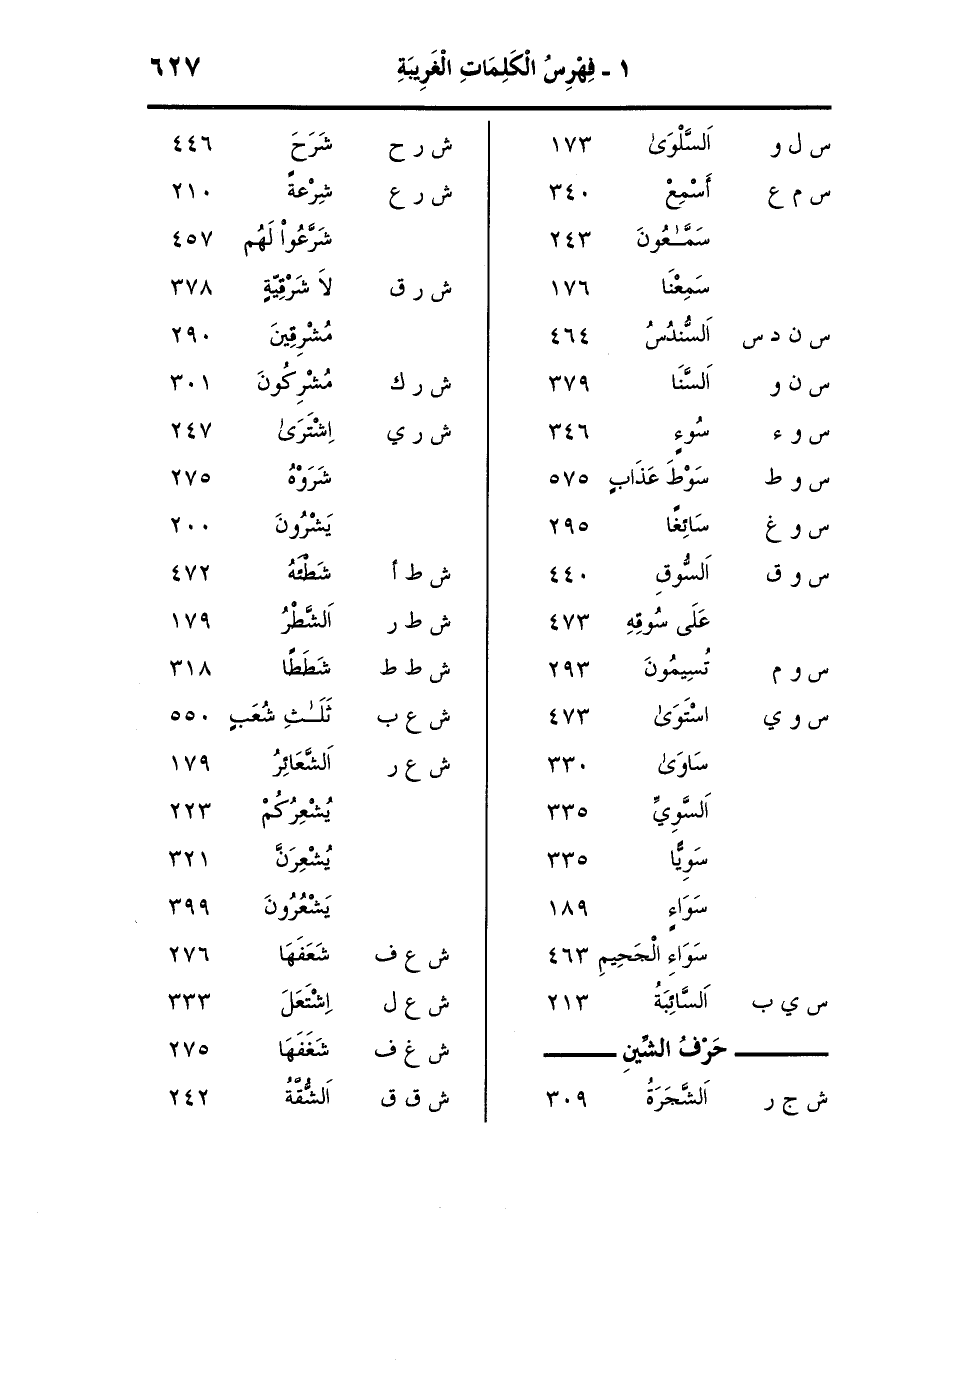 ١ - فِهْرِسُ الْكَلِمَاتِ الْغَرِيبَةِ ٦٢٧
س ل و اَلسَّلْوَىٰ ١٧٣
س م ع أَسْمِعْ ٣٤٠
سَمَّـٰعُونَ ٢٤٣
سَمِعْنَا ١٧٦
س ن د س اَلسُّندُسُ ٤٦٤
س ن و اَلسَّنَا ٣٧٩
س و ء سُوءٍ ٣٤٦
س و ط سَوْطَ عَذَابٍ ٥٧٥
س و غ سَائِغًا ٢٩٥
س و ق اَلسُّوقِ ٤٤٠
عَلَى سُوقِهِ ٤٧٣
س و م تُسِيمُونَ ٢٩٣
س و ي اسْتَوَىٰ ٤٧٣
سَاوَىٰ ٣٣٠
اَلسَّوِيِّ ٣٣٥
سَوِيًّا ٣٣٥
سَوَاءٍ ١٨٩
سَوَاءِ الْجَحِيمِ ٤٦٣
س ي ب اَلسَّائِبَةُ ٢١٣
حَرْفُ الشِّينِ
ش ج ر اَلشَّجَرَةُ ٣٠٩
ش ر ح شَرَحَ ٤٤٦
ش ر ع شِرْعَةً ٢١٠
شَرَّعُواْ لَهُم ٤٥٧
ش ر ق لاَ شَرْقِيَّةٍ ٣٧٨
مُشْرِقِينَ ٢٩٠
ش ر ك مُشْرِكُونَ ٣٠١
ش ر ي اِشْتَرَىٰ ٢٤٧
شَرَوْهُ ٢٧٥
يَشْرُونَ ٢٠٠
ش ط أ شَطْئَهُ ٤٧٢
ش ط ر اَلشَّطْرُ ١٧٩
ش ط ط شَطَطًا ٣١٨
ش ع ب ثَلَـٰثِ شُعَبٍ ٥٥٠
ش ع ر اَلشَّعَائِرُ ١٧٩
يُشْعِرُكُمْ ٢٢٣
يُشْعِرَنَّ ٣٢١
يَشْعُرُونَ ٣٩٩
ش ع ف شَعَفَهَا ٢٧٦
ش ع ل اِشْتَعَلَ ٣٣٣
ش غ ف شَغَفَهَا ٢٧٥
ش ق ق اَلشُّقَّةُ ٢٤٢